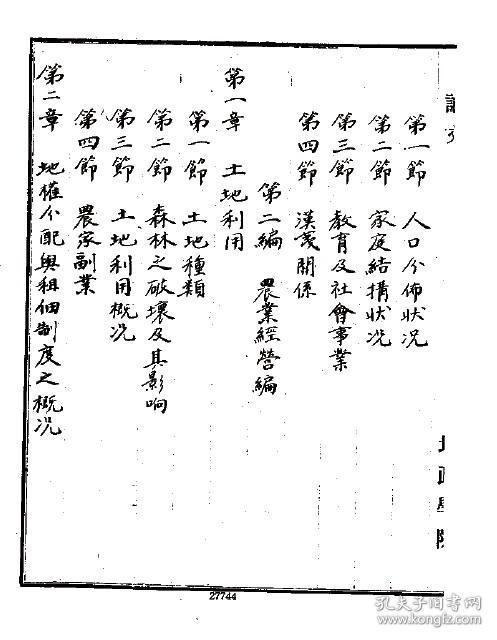 第一節　人口分佈狀况
第二節　家庭結構狀况
第三節　教育及社會事業
第四節　漢夷關係
第二編　農業經營編
第一章　土地利用
第一節　土地種類
第二節　森林之破壞及其影响
第三節　土地利用概况
第四節　農家副業
第二章　地權分配與租佃制度之概况
27744
孔夫子旧书网
www.kongfz.com